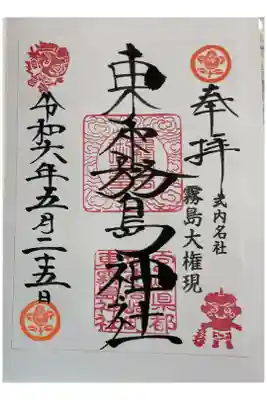 奉拝
式内名社
霧島大権現
東霧島神社
令和六年五月二十五日